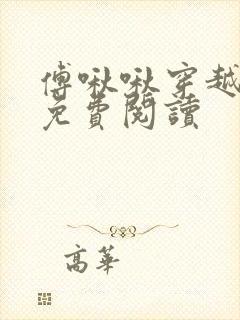 傅啾啾穿越
免費閱讀
高華